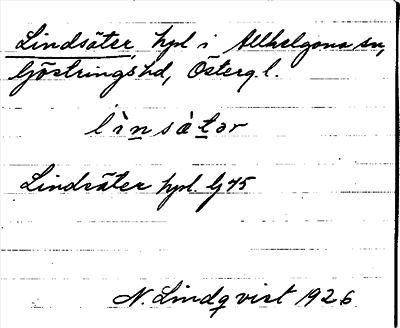 Lindsäter, hpl i Allhelgona sn,
Göstrings hd, Österg. l.
lìnsàtər
Lindsäter hpl. G 75
N. Lindqvist 1926